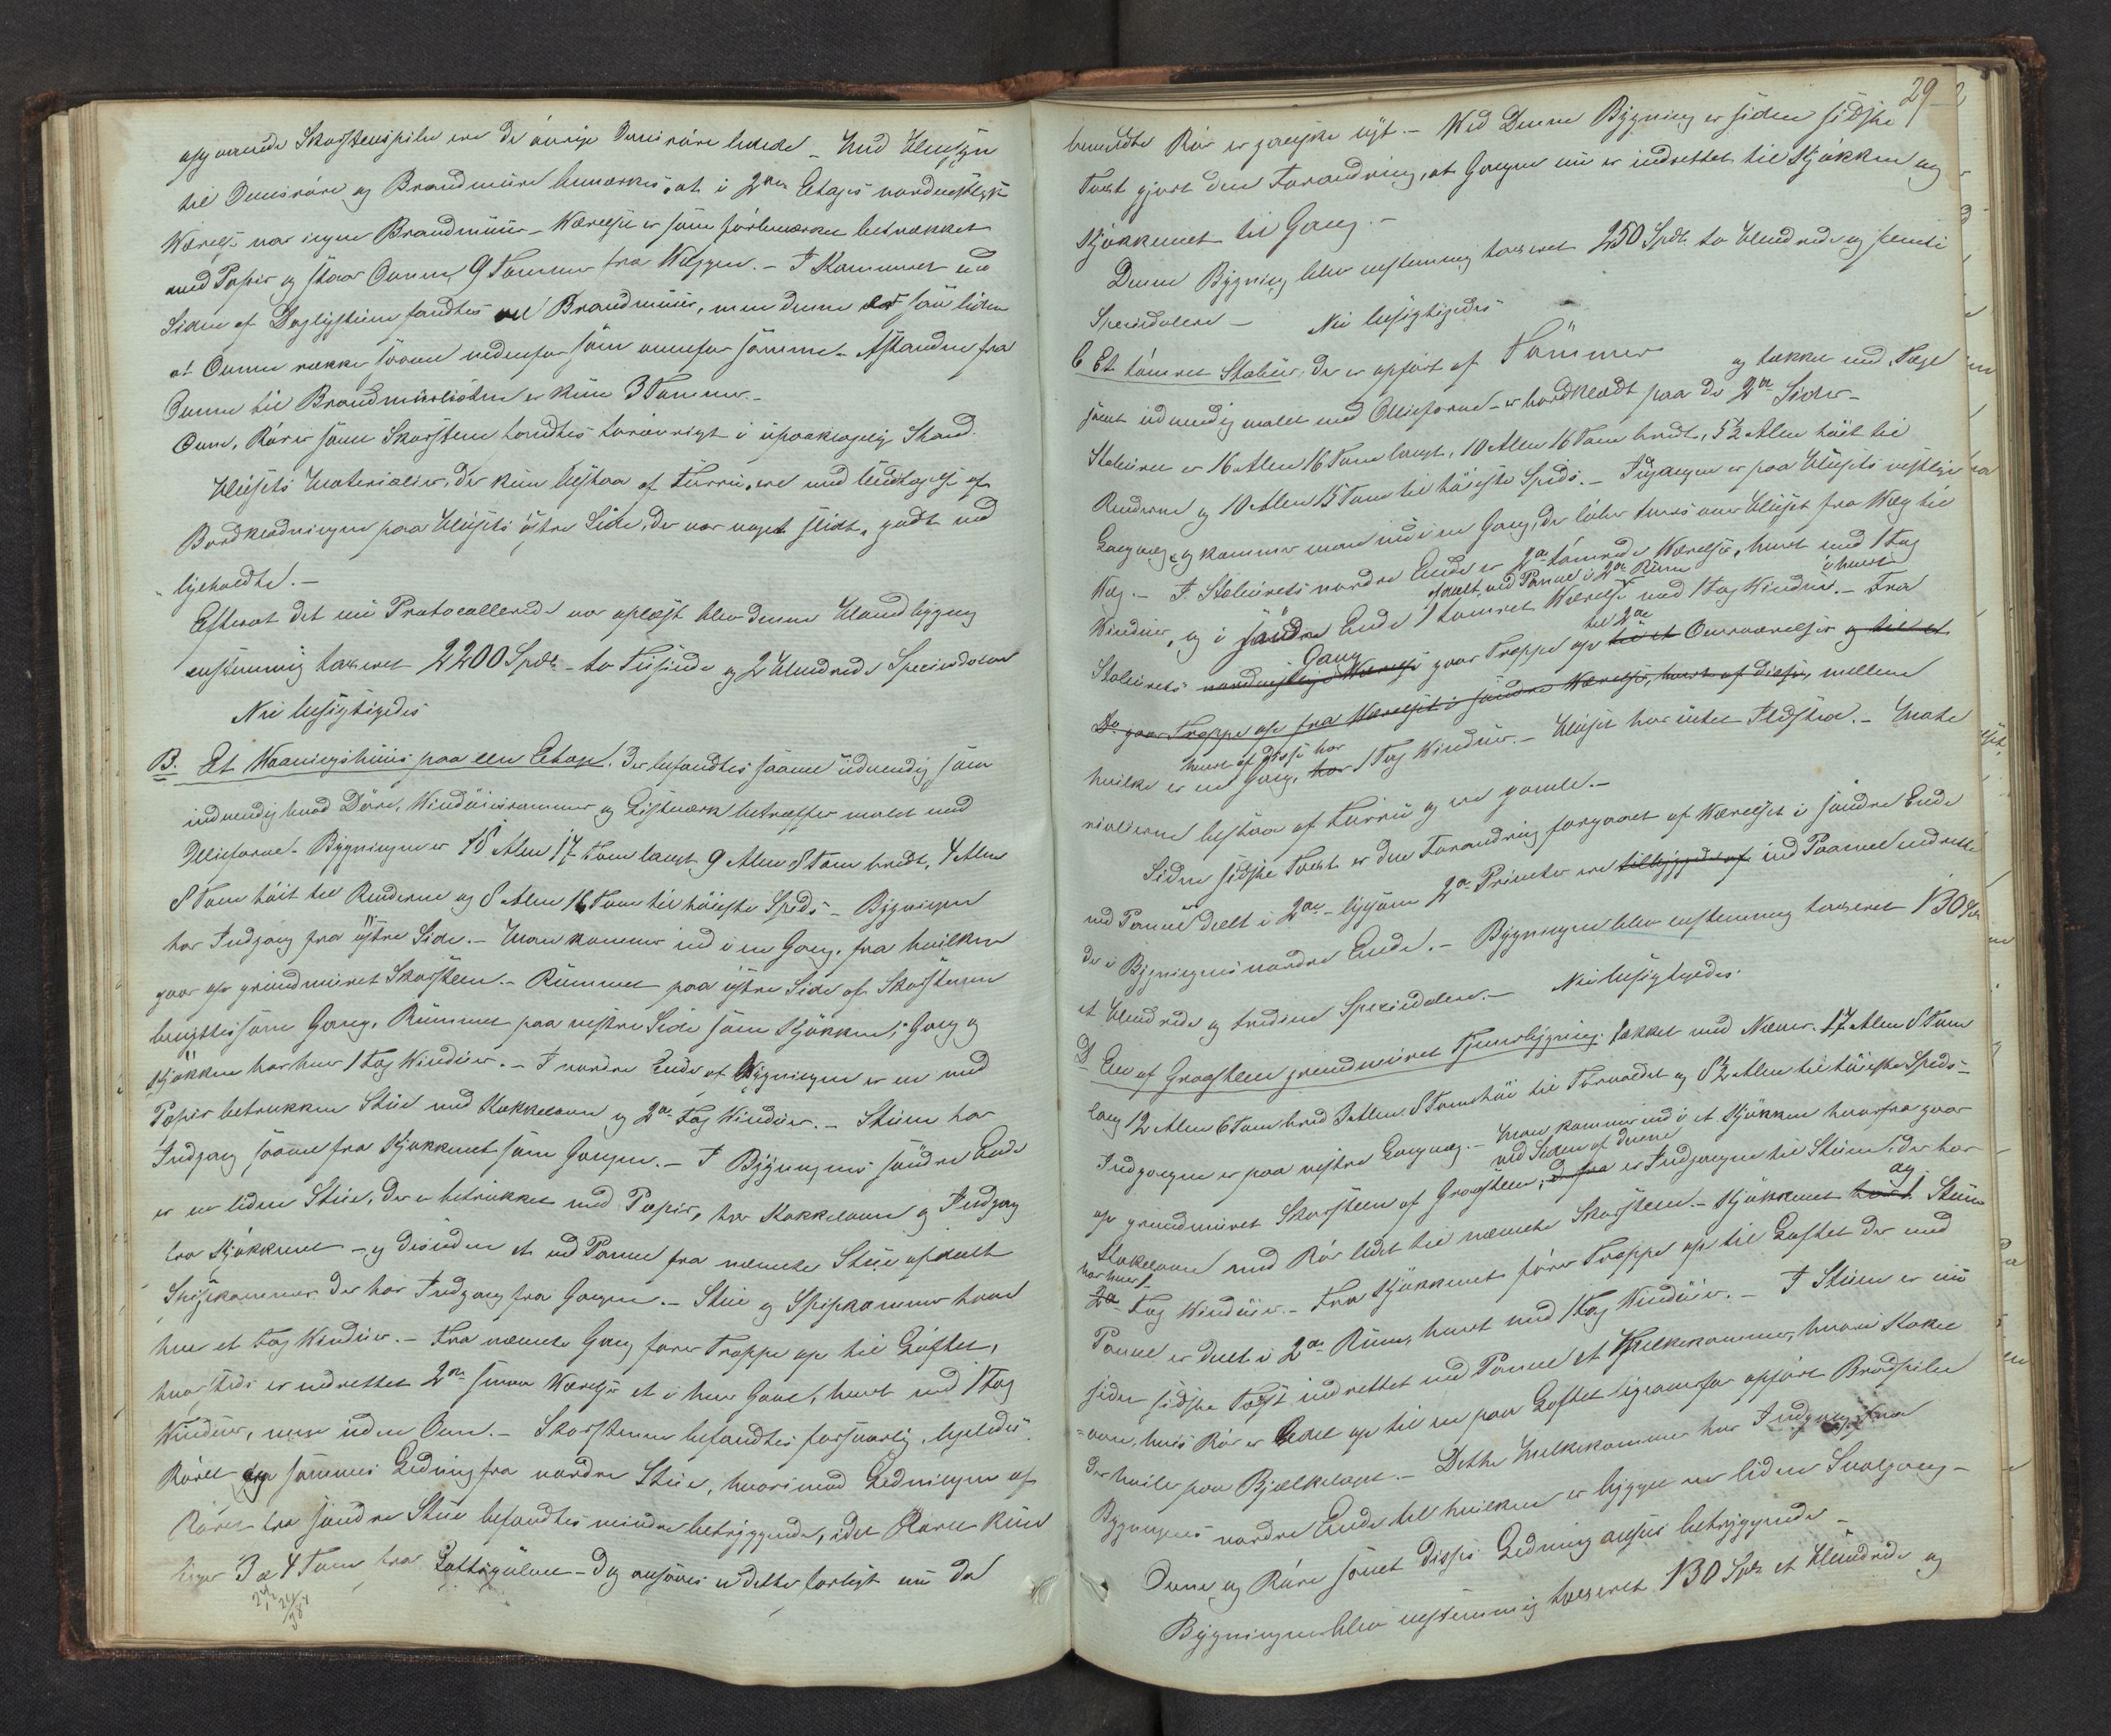 opgaaende Skorsteenspibe ere de övrige Ovnsröre ledede – Med Hensyn
til Ovnsröre og Brandmure bemærkes, at i 2den Etages nordvestlige
Værelse var ingen Brandmuur – Værelset er som förbemærket betrukket
med Papir og staar Ovnen 9 Tommer fra Væggen. – I Kammeret ved
Siden af Dagligstuen fandtes vel Brandmuur, men denne er saa liden
at Ovnen rækker saavel nedenfor som ovenfor samme. Afstanden fra
Ovnen til Brandmuurlisten er kun 3 Tommer. –
Ovne, Rör som Skorsteen fandtes forövrigt i upaaklagelig Stand.
Husets Materialier, der kun bestaa af Furru, ere med Undtagelse af
Bordklædningen paa Husets östre Side, der var noget slidt, godt ved
ligeholdte. –
Efterat det nu Protocollerede var oplæst blev denne Hovedbygning
enstemmig taxeret 2200 Spd. – to Tusinde og 2 Hundrede Speciedaler
Nu besigtigedes
B. Et Vaaningshuus paa een Etage. Der befandtes saavel udvendig som
indvendig hvad Döre, Vinduesrammer og Listværk betræffer malet med
Olliefarve. Bygningen er 18 Alen 17 Tom langt 9 Alen 8 Tom bredt, 4 Alen
8 Tom höit til Renderne og 8 Alen 16 Tom til höieste Spids – Bygningen
har Indgang fra östre Side. – Man kommer ind i en Gang, fra hvilken
gaar op grundmuret Skorsteen. – Rummet paa östre Side af Skorstenen
benyttes som Gang, Rummet paa vestre Side som Kjökken; Gang og
Kjökken har hver 1 Fag Vinduer. – I nordre Ende af Bygningen er en med
Papir betrukken Stue med Kakkelovn og 2de Fag Vinduer. – Stuen har
Indgang saavel fra Kjøkkenet som Gangen. – I Bygningens söndre Ende
er en liden Stue, der er betrukket med Papir, har Kakkelovn og Indgang
fra Kjökkenet – og desuden et ved Panel fra nævnte Stue afdeelt
Spiiskammer der har Indgang fra Gangen. – Stue og Spiiskammer have
hver et Fag Vinduer. – Fra nævnte Gang förer Trappe op til Loftet,
hvorsteds er indrettet 2de smaa Værelser et i hver Gavl, hvert med 1 Fag
Vinduer, men uden Ovn. – Skorstenen befandtes forsvarlig, ligeledes
Röret og sammes Ledning fra nordre Stue, hvorimod Ledningen af
Röret fra söndre Stue befandtes mindre betryggende, idet Röret kun
ligger 3 a 4 Tom fra Loftsgulvet – Dog ansaaes dette forligt nu da
29
bemeldte Rör er ganske nyt. – Ved Denne Bygning er siden sidste
Taxt gjort den Forandring, at Gangen nu er indrettet til Kjökken og
Kjökkenet til Gang. –
Denne Bygning blev enstemmig taxeret 250 Spd. to Hundrede og femti
Speciedalere – Nu besigtigedes
C Et tömret Stabuur, der er opfört af Tömmer og tækket med Tagsteen
samt udvendig malet med Olliefarve – er bordklædt paa de 2de Sider –
Stabuuret er 16 Alen 16 Tom langt, 10 Alen 16 Tom bredt, 5½ Alen höit til
Renderne og 10 Alen 15 Tom til höieste Spids. – Indgangen er paa Husets vestlige
Langvæg, og kommer man ind i en Gang, der löber tvers over Huset fra Væg til
Væg. – I Stabuurets nordre Ende er 2de tömrede Værelser, hvert med 1 Fag
Vinduer, og i söndre Ende 1 tömret Værelse afdeelt ved Panel i 2de Rum med 1 Fag Vinduer i hvert. – Fra
Stabuurets nordvestlige Værelse Gang gaar Trappe op til et til 2de Oververelser og til et
Do gaar Trappe op fra Værelset i söndre Værelse, hvert af disse, mellem
hvilke er en Gang, hvert af disse har har 1 Fag Vinduer. – Huset har intet Ildsted. – Mate
rialierne bestaa af Furru og ere gamle. –
Siden sidste Taxt er den Forandring foregaaet at Værelset i söndre Ende
ved Panel deelt i 2de – ligesom 2de Priveter ere tilbyggede af ved Paanel indrette
de i Bygningens nordre Ende. – Bygningen blev enstemmig taxeret 130 Spd
et Hundrede og tredive Speciedalere. – Nu besigtigedes.
D En af Graasteen grundmuret Fjøsbygning tækket med Næver. 17 Alen 8 Tom
lang 12 Alen 6 Tom bred 3 Alen 8 Tom höi til Törvaldet og 8½ Alen til höieste Spids –
Indgangen er paa vestre Langvæg. – Man kommer ind i et Kjökken hvorfra gaar
op grundmuret Skorsteen af Graasteen, og fra ved Siden af denne er Indgangen til Stuen, der har
Kakelovn med Rör ledet til nævnte Skorsteen. – Kjökkenet har 1 og Stuen
2de har hver 1 Fag Vinduer. – Fra Kjökkenet förer Trappe op til Loftet der med
Panel er deelt i 2de Rum, hvert med 1 Fag Vinduer. – I Stuen er nu
siden sidste Taxt indrettet ved Panel et Melkekammer, hvori Kakel
-ovn, hvis Rör er ledet op til en paa Loftet ligeoverfor opfört Brandpibe
der hviler paa Bjelkelaget. – Dette Melkekammer har Indgang fra
Bygningens nordre Ende til hvilken er bygget en liden Svalgang –
Ovne og Röre samt disses Ledning ansees betryggende –
Bygningen blev enstemmig taxeret 130 Spd et Hundrede og